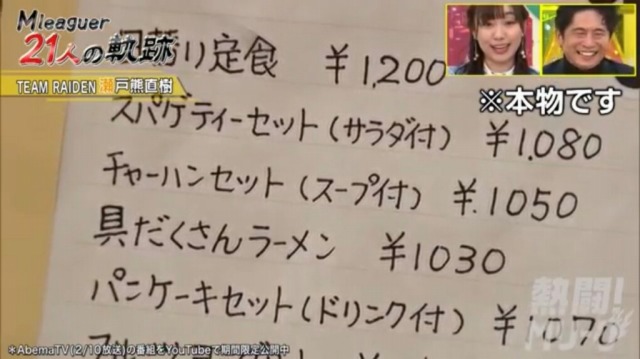 Mleaguer
21人の軌跡
TEAM RAIDEN 瀬戸熊直樹
※本物です
り定食 ¥1,200
スパゲティーセット(サラダ付) ¥1,080
チャーハンセット(スープ付) ¥1050
具だくさんラーメン ¥1030
パンケーキセット(ドリンク付) ¥1070
熱闘!
*AbemaTV(2/10放送)の番組をYouTubeで期間限定公開中